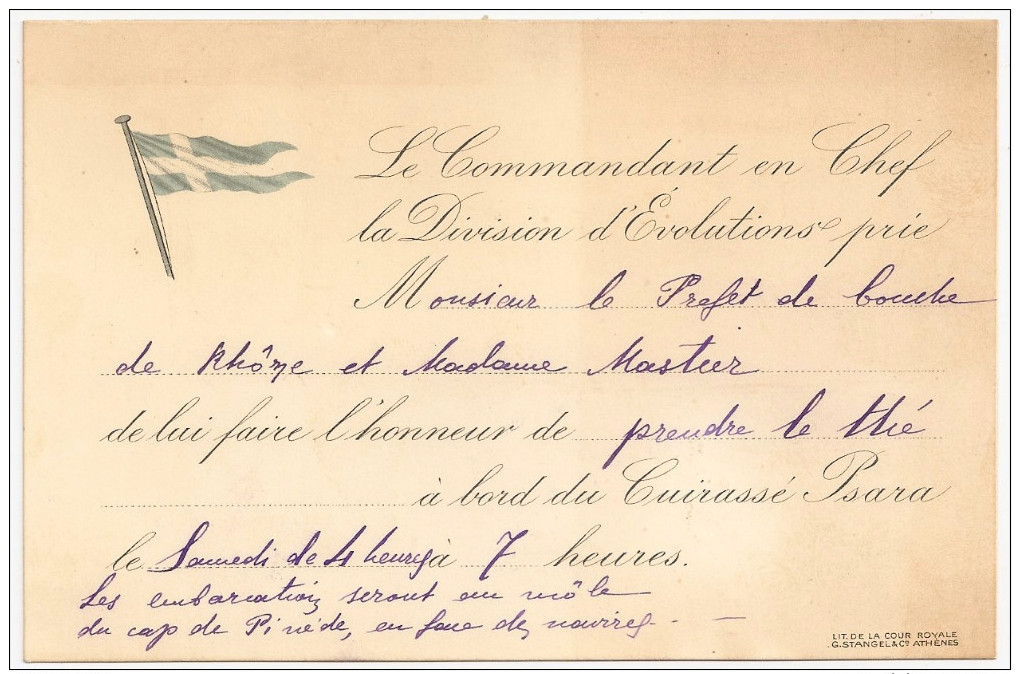 Le Commandant en Chef
la Division d'Évolutions prie
Monsieur le Prefet de bouche
de Rhône et Madame Mastier
de lui faire l'honneur de prendre le thé
à bord du Cuirassé Psara
le Samedi de 4 heures à 7 heures.
Les embarcations seront au môle
du cap de Pinède, en face des navires
LIT. DE LA COUR ROYALE
G. STANGEL & Co ATHÈNES